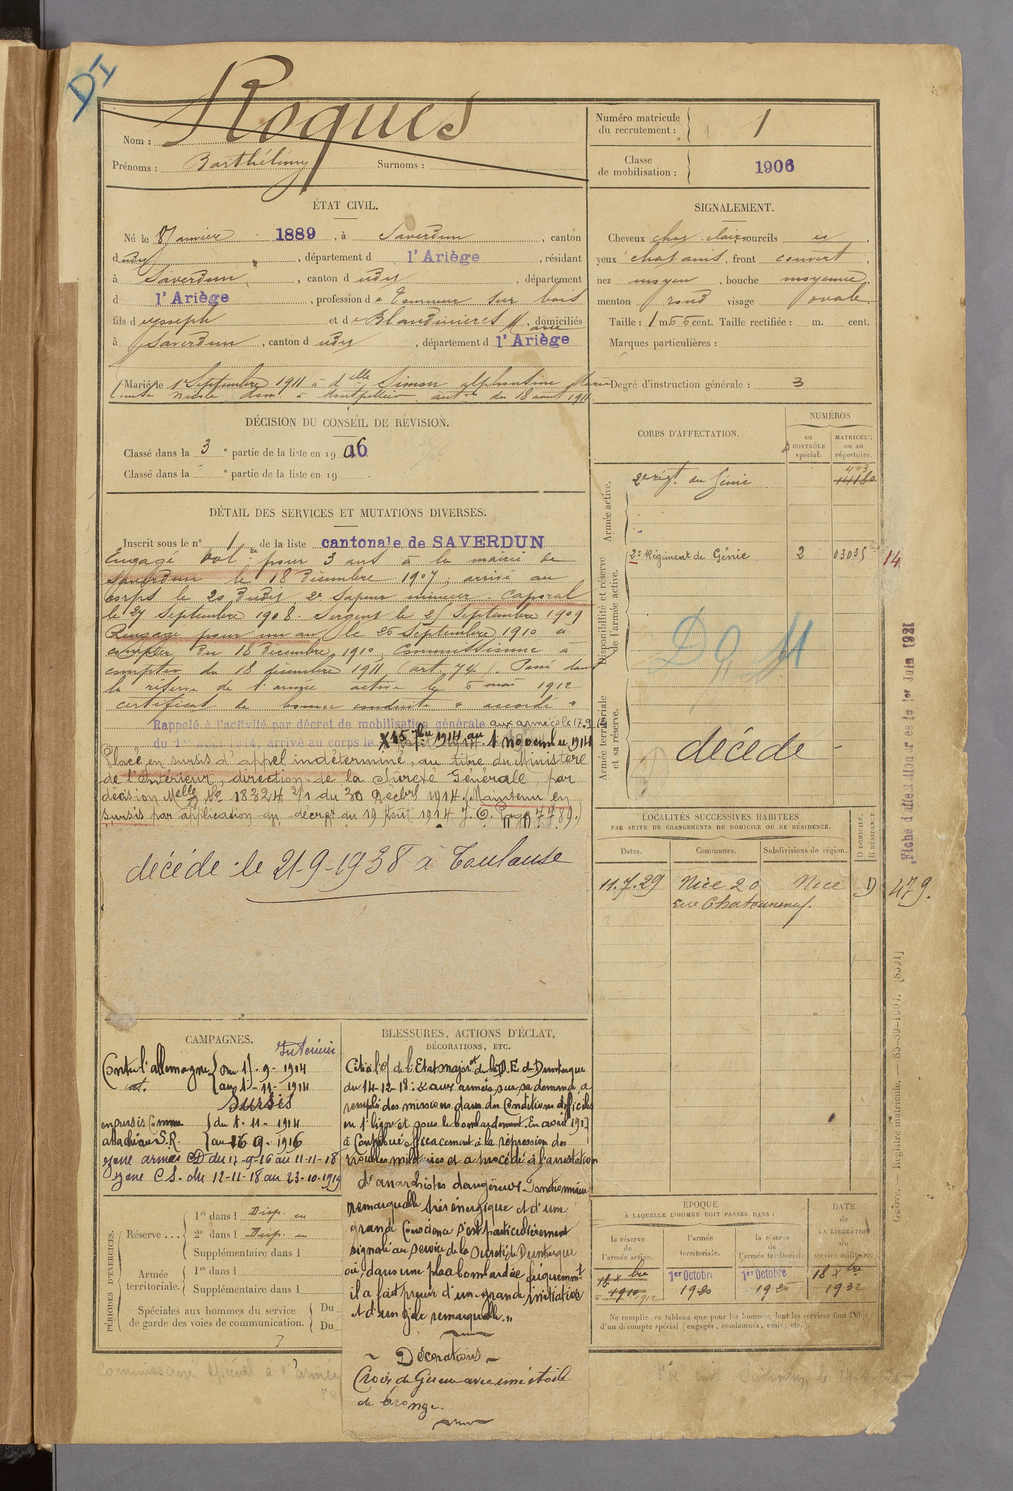 DI
Nom : Roques
Prénoms : Barthélémy Surnoms :
Numéro matricule du recrutement : 1
Classe de mobilisation : 1906
ÉTAT CIVIL.
Né le 8 Janvier 1889, à Saverdun, canton
dudit, département d l'Ariège, résidant
à Saverdun, canton d udit, département
d l'Ariège, profession de Tourneur sur bois
fils de Joseph et de Blandinières Marie, domiciliés
à Saverdun, canton d udit, département d l'Ariège
Marié le 1er Septembre 1911 à delle Simon Alphonsine
à Montpellier aut. du 18 août 1911
SIGNALEMENT.
Cheveux chat. clair sourcils
yeux front couvert
nez moyen, bouche moyenne
menton rond visage ovale
Taille : 1 m 55 cent. Taille rectifiée : m. cent.
Marques particulières :
Degré d'instruction générale : 3
DÉCISION DU CONSEIL DE RÉVISION.
Classé dans la 3e partie de la liste en 1906
Classé dans la e partie de la liste en 19
DÉTAIL DES SERVICES ET MUTATIONS DIVERSES.
Inscrit sous le n° 1 de la liste cantonale de SAVERDUN
Engagé vol. pour 3 ans à la mairie de
Saverdun le 18 Décembre 1907, arrivé au
corps le 20 dudit, 2e Sapeur mineur. Caporal
le 27 Septembre 1908. Sergent le 21 Septembre 1909
Rengagé pour un an le 25 Septembre 1910 à
compter du 18 Décembre 1910, Commissionné à
compter du 18 décembre 1911 (art. 74). Passé dans
la réserve de l'armée active le 5 mai 1912
certificat de bonne conduite "accordé"
Rappelé à l'activité par décret de mobilisation générale aux armées le 17.9.14
du 1er arrivé au corps le 1914 au 1 novembre 1914
Placé en sursis d'appel indéterminé, au titre du Ministère
de l'Intérieur, direction de la Sûreté Générale par
décision Melle No 18324 2/1 du 30 Décbre 1914. Maintenu en
sursis par application du décret du 19 Août 1914 J.O. Page 7789).
décédé le 21-9-1938 à Toulouse
CORPS D'AFFECTATION.
NUMÉROS
au CONTRÔLE spécial.
MATRICULE ou au répertoire.
Armée active.
2e régt. du Génie 493
Disponibilité et réserve de l'armée active.
2e Régiment de Génie 2 03035 14
Armée territoriale et sa réserve.
décédé
Fiche d'affectation créée le 1er Juin 1921
LOCALITÉS SUCCESSIVES HABITÉES
PAR SUITE DE CHANGEMENTS DE DOMICILE OU DE RÉSIDENCE.
Dates. Communes. Subdivisions de région. D DOMICILE. R RÉSIDENCE.
11.7.29 Nice 20 Nice D 479.
rue Chateauneuf.
CAMPAGNES.
Intérieur
Contre l'allemagne du 15-9-1914
au 1-11-1914
Sursis
en sursis comme du 1-11-1914
attaché au S.R. au 16 9-1916
Zone armées CD du 17-9-16 au 11-11-18
Zone C S. du 12-11-18 au 23-10-1919
BLESSURES, ACTIONS D'ÉCLAT,
DÉCORATIONS, ETC.
Cité à l'O/ de l'Etat major de la D.E. de Dunkerque
du 14-12-18 : "aux armées, sur sa demande, a
rempli des missions dans des Conditions difficiles
en 1e ligne et sous le bombardement. En avril 1917
à Contribué efficacement à la répression des
troubles militaires et a procédé à l'arrestation
d'anarchistes dangereux. Fonctionnaire
remarquable très énergique et d'une
grande Conscience s'est particulièrement
signalé au service de la Sureté de Dunkerque
où dans une place bombardée fréquemment
il a fait preuve d'une grande initiative
et d'un zèle remarquable."
Décorations
Croix de Guerre avec une étoile
de bronze.
PÉRIODES D'EXERCICES.
Réserve ... 1re dans l Disp. en
2e dans l Disp. en
Supplémentaire dans l
Armée territoriale. 1re dans l
Supplémentaire dans l
Spéciales aux hommes du service
de garde des voies de communication. Du
Du
ÉPOQUE
À LAQUELLE L'HOMME DOIT PASSER DANS :
la réserve de l'armée active.
l'armée territoriale.
la réserve de l'armée territoriale
DATE de LA LIBÉRATION du service militaire
18 Xbre 1910
1er Octobre 1920
1er Octobre 1926
18 Xbre 1932
Ne remplir ce tableau que pour les hommes dont les services font l'objet
d'un décompte spécial (engagés, condamnés, omis, etc.).
Commissaire Spécial à l'armée